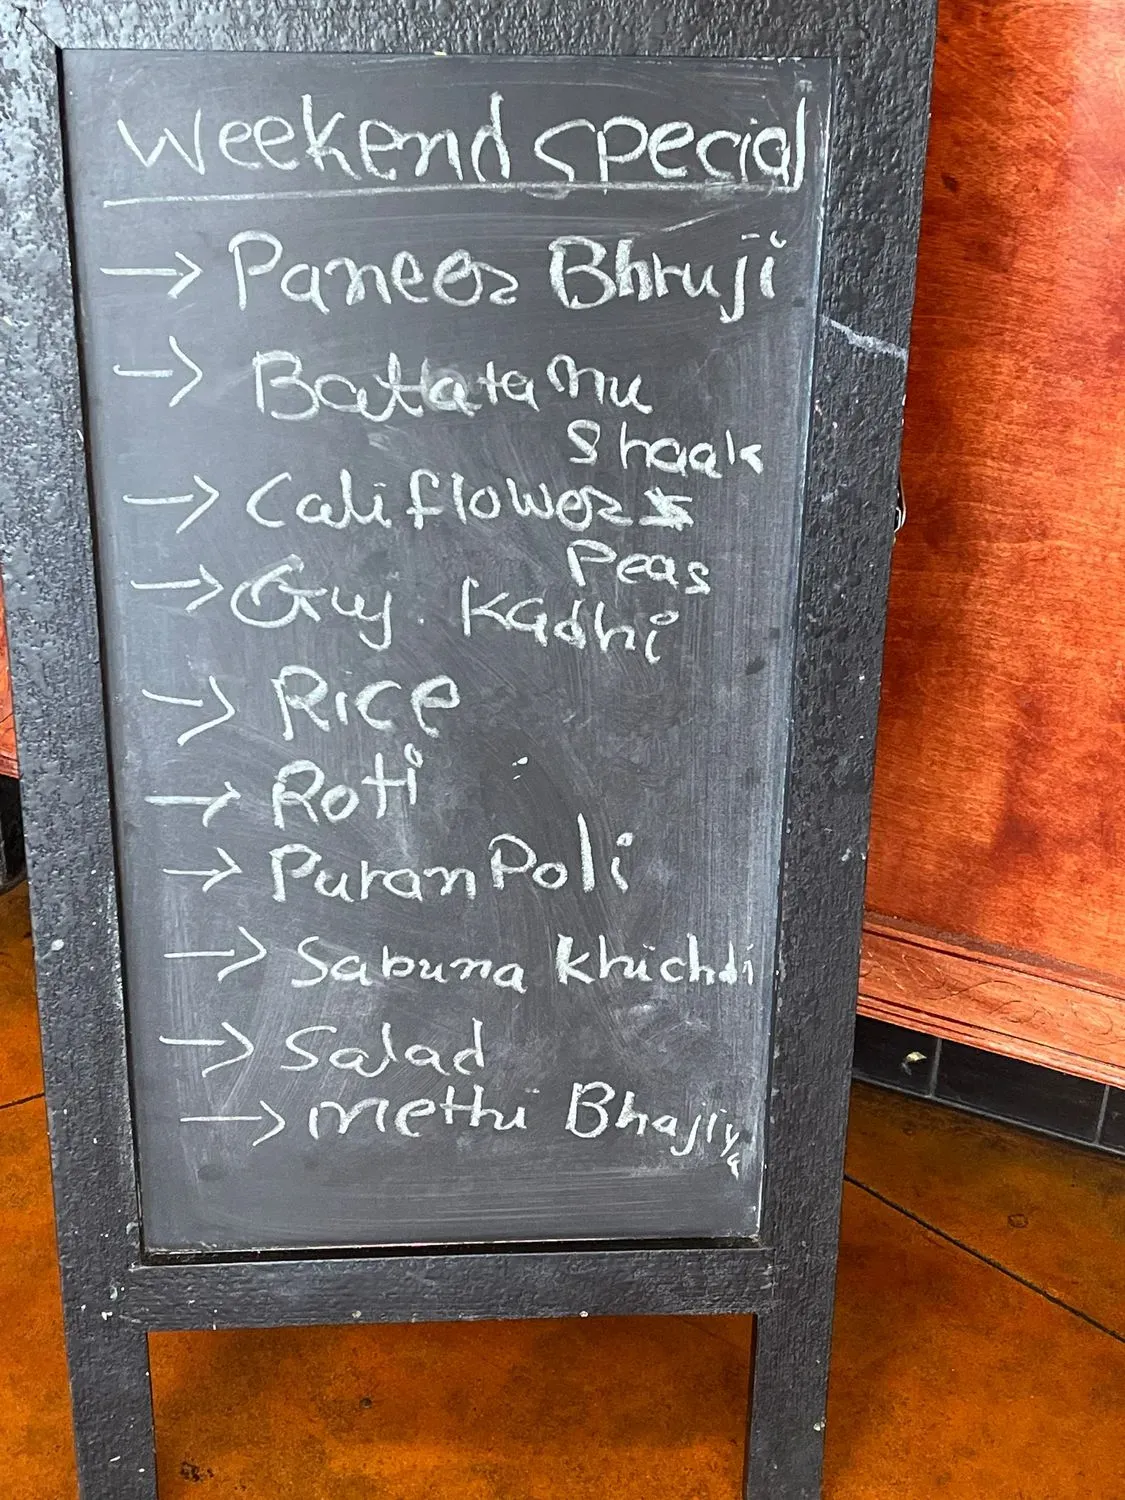 Weekend special
→ Paneer Bhruji
→ Batata nu
Shaak
→ Califlower &
Peas
→ Guj. Kadhi
→ Rice
→ Roti
→ Puran Poli
→ Sabuna Khichdi
→ Salad
→ methi Bhajiya